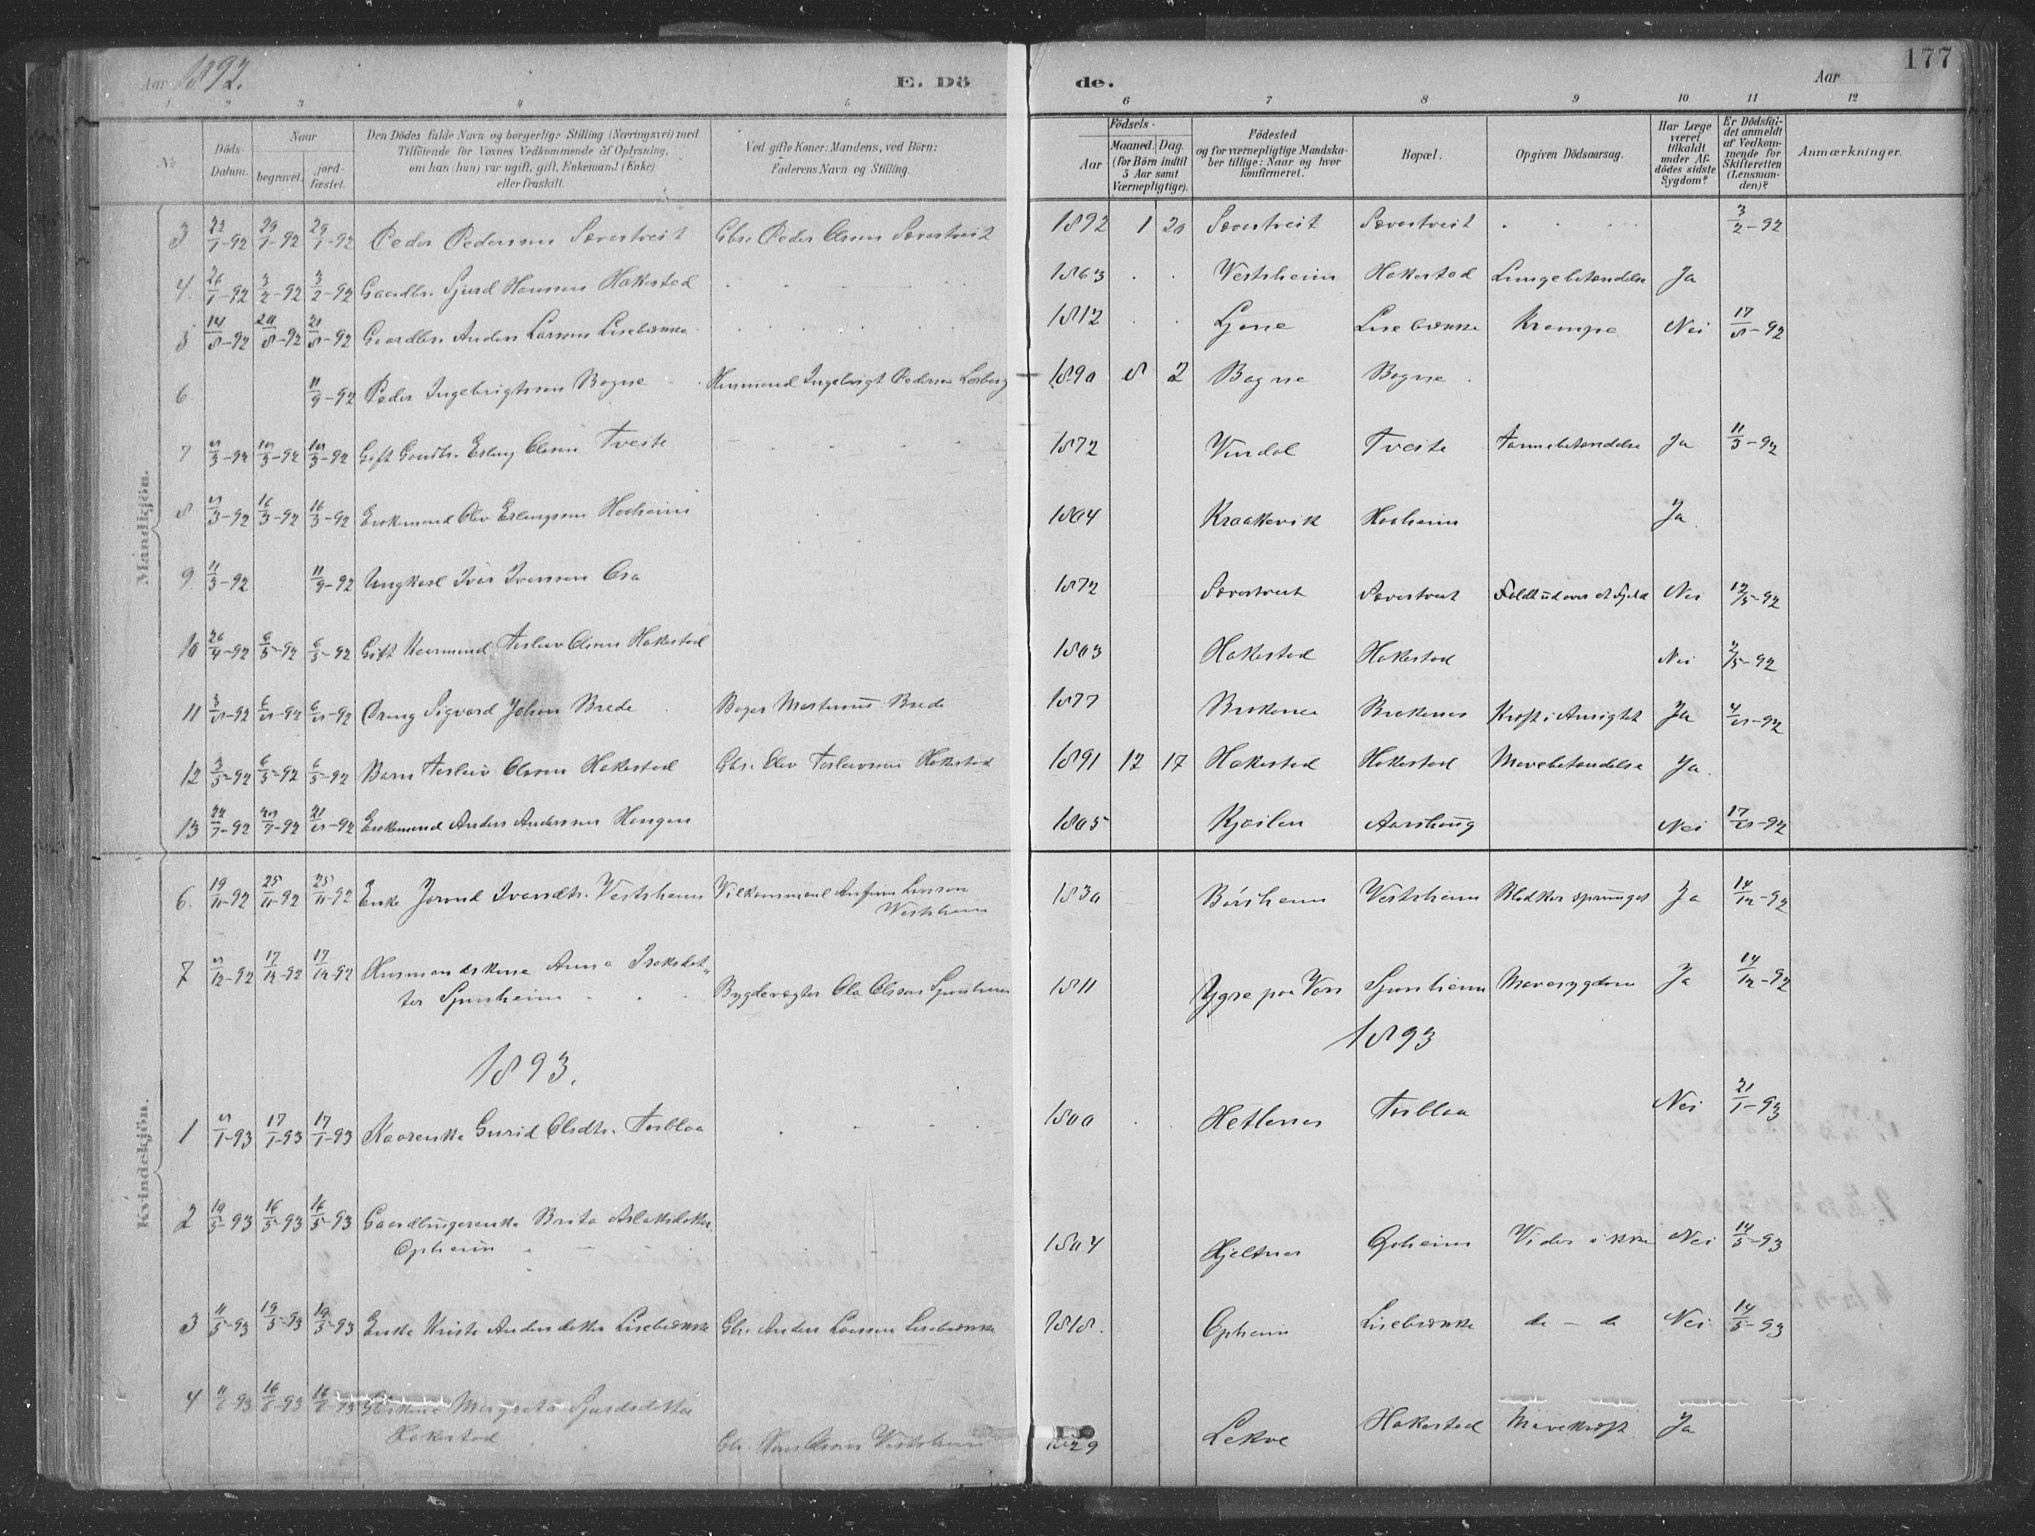 Aar 1892.
E. Dö
de.
Aar
177
1 2 3 4 5 6 7 8 9 10 11 12
No
Döds-
Datum.
Naar
begravet.
jord-
fæstet.
Den Dödes fulde Navn og borgerlige Stilling (Næringsvei) med
Tilföiende for Voxnes Vedkommende af Oplysning,
om han (hun) var ugift, gift, Enkemand (Enke)
eller fraskilt.
Ved gifte Koner: Mandens, ved Börn:
Faderens Navn og Stilling.
Födsels-
Aar
Maaned. Dag.
(for Börn indtil
5 Aar samt
Værnepligtige).
Födested
og for værnepligtige Mandska-
ber tillige: Naar og hvor
konfirmeret.
Bopæl.
Opgiven Dödsaarsag.
Har Læge
været
tilkaldt
under Af-
dödes sidste
Sygdom?
Er Dödsfal-
det anmeldt
af Vedkom-
mende for
Skifteretten
(Lensman-
den)?
Anmærkninger.
Mandkjön.
3 22/1-92 29/1-92 29/1-92 Peder Pedersen Sævertveit Gbr. Peder Olsen Sævertveit 1892 1 20 Sævertveit Sævertveit 3/2-92
4. 26/1-92 3/2-92 3/2-92 Gaardbr. Sjurd Hansen Hakestad 1863 Vestrheim Hakestad Lungebetændelse Ja
5 14/8-92 20/8-92 21/8-92 Gaardbr. Anders Larsen Lisebrække 1812 Ljone Lisebrække Krampe Nei 17/8-92
6 11/9-92 Peder Ingebrigtsen Bagne Husmand Ingebrigt Pedersen 1890 8 2 Bagne Bagne
7 5/3-92 10/3-92 10/3-92 Gift Gaardbr. Erling Olsen Tveite 1872 Vindal Tveite Tarmebetændelse Ja 11/3-92
8 5/3-92 16/3-92 16/3-92 Enkemand Olav Erlingsen Haaheim 1804 Kraakevik Haaheim Ja
9 11/3-92 11/9-92 Ungkarl Iver Iversen Osa 1872 Sævertveit Sævertveit Faldt ud over et Fjeld Nei 12/5-92
10 26/4-92 6/5-92 6/5-92 Gift Torleiv Olsen Hakestad 1803 Hakestad Hakestad Nei 2/5-92
11 3/8-92 6/8-92 6/8-92 Dreng Sigvard Johan Brede Bager Martinus Brede 1877 Brakenes Brakenes Kræft i Ansigtet Ja 4/8-92
12 3/5-92 6/5-92 6/5-92 Barn Torleiv Olsen Hakestad Gbr. Olav Torleivsen Hakestad 1891 12 17 Hakestad Hakestad Mavebetændelse Ja.
13 22/7-92 21/8-92 Enkemand Anders Andersen Haugen 1805 Kjærland Aarhaug Nei 17/8-92
Kvindekjön.
6. 19/11-92 25/11-92 25/11-92 Enke Jorond Ivarsdtr. Vestrheim Vilkaarsmand Arnfinn Larsen
Vestrheim 1830 Børsheim Vestrheim Blodkar sprunget Ja 14/12-92
7 5/12-92 17/12-92 17/12-92 Husmandskone Anna Isaksdat-
ter Spaanheim Bygdevægter Ola Olsson Spaanheim 1811 Ygre paa Vos Spaanheim Mavesygdom Ja 14/12-92
1893.
1893
1 5/1-93 17/1-93 17/1-93 Kaarenke Gurid Olsdtr. Torblaa 1800 Hetlenes Torblaa Nei 21/1-93
2 10/5-93 16/5-93 16/5-93 Gaardbrugerenke Brita Aslaksdatter
Opheim 1804 Hjeltnes Opheim Vides ikke Nei 14/5-93
3 11/5-93 19/5-93 19/5-93 Enke Kristi Andersdatter Lisebrække Gbr. Anders Larsen Lisebrække 1818. Opheim Lisebrække do - do Nei 14/5-93
4 11/6-93 16/6-93 16/6-93 Margreta Sjurdsdatter
Hakestad Gbr. Hans Olsen Vestrheim 1829 Lekve Hakestad Mavekræft Ja